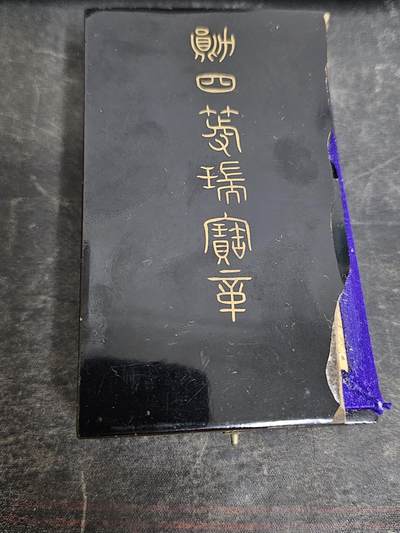 勲四等瑞寶章